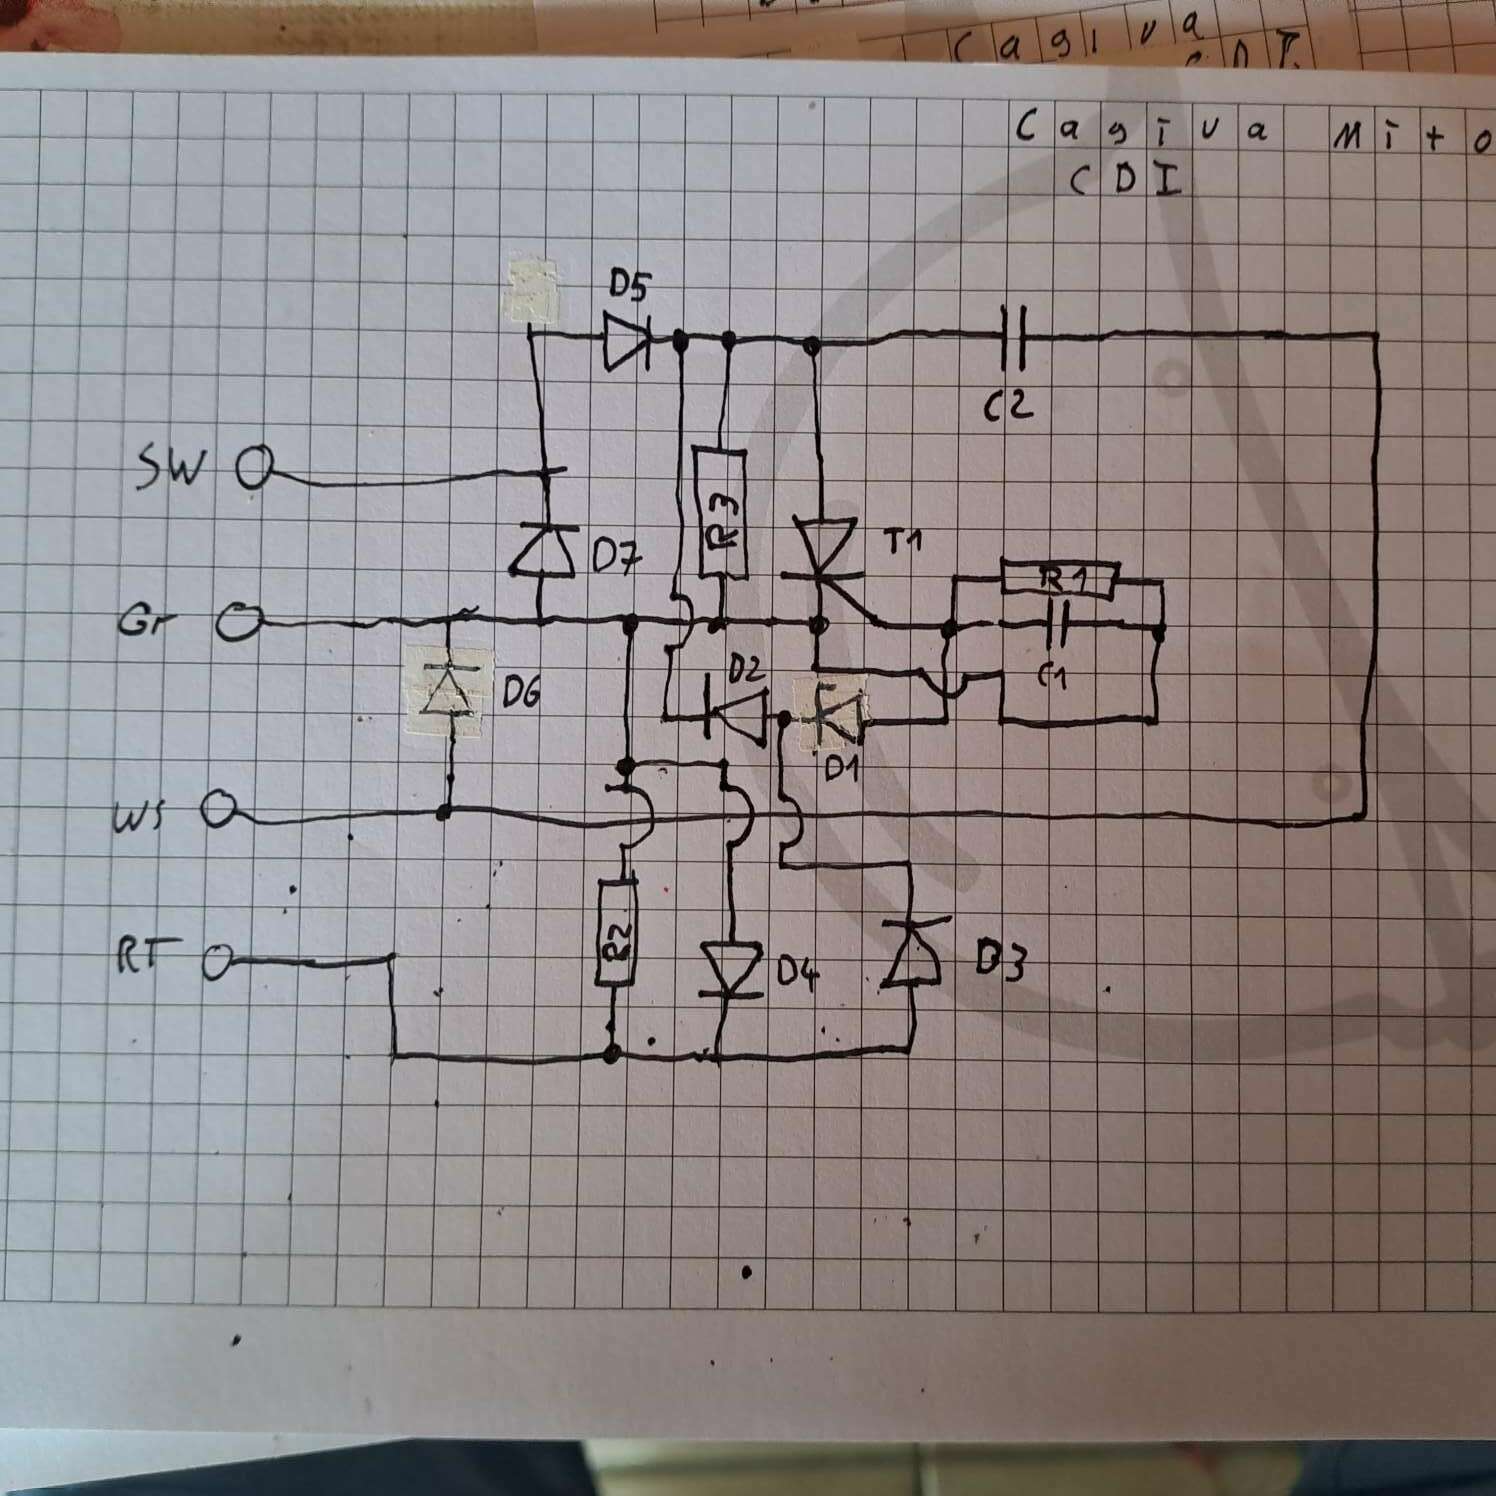 Cagiva
Cagiva Mito
CDI
D5
C2
SW
R3
T1
D7
R1
Gr
C1
D2
D6
D1
WS
R2
RT
D4
D3